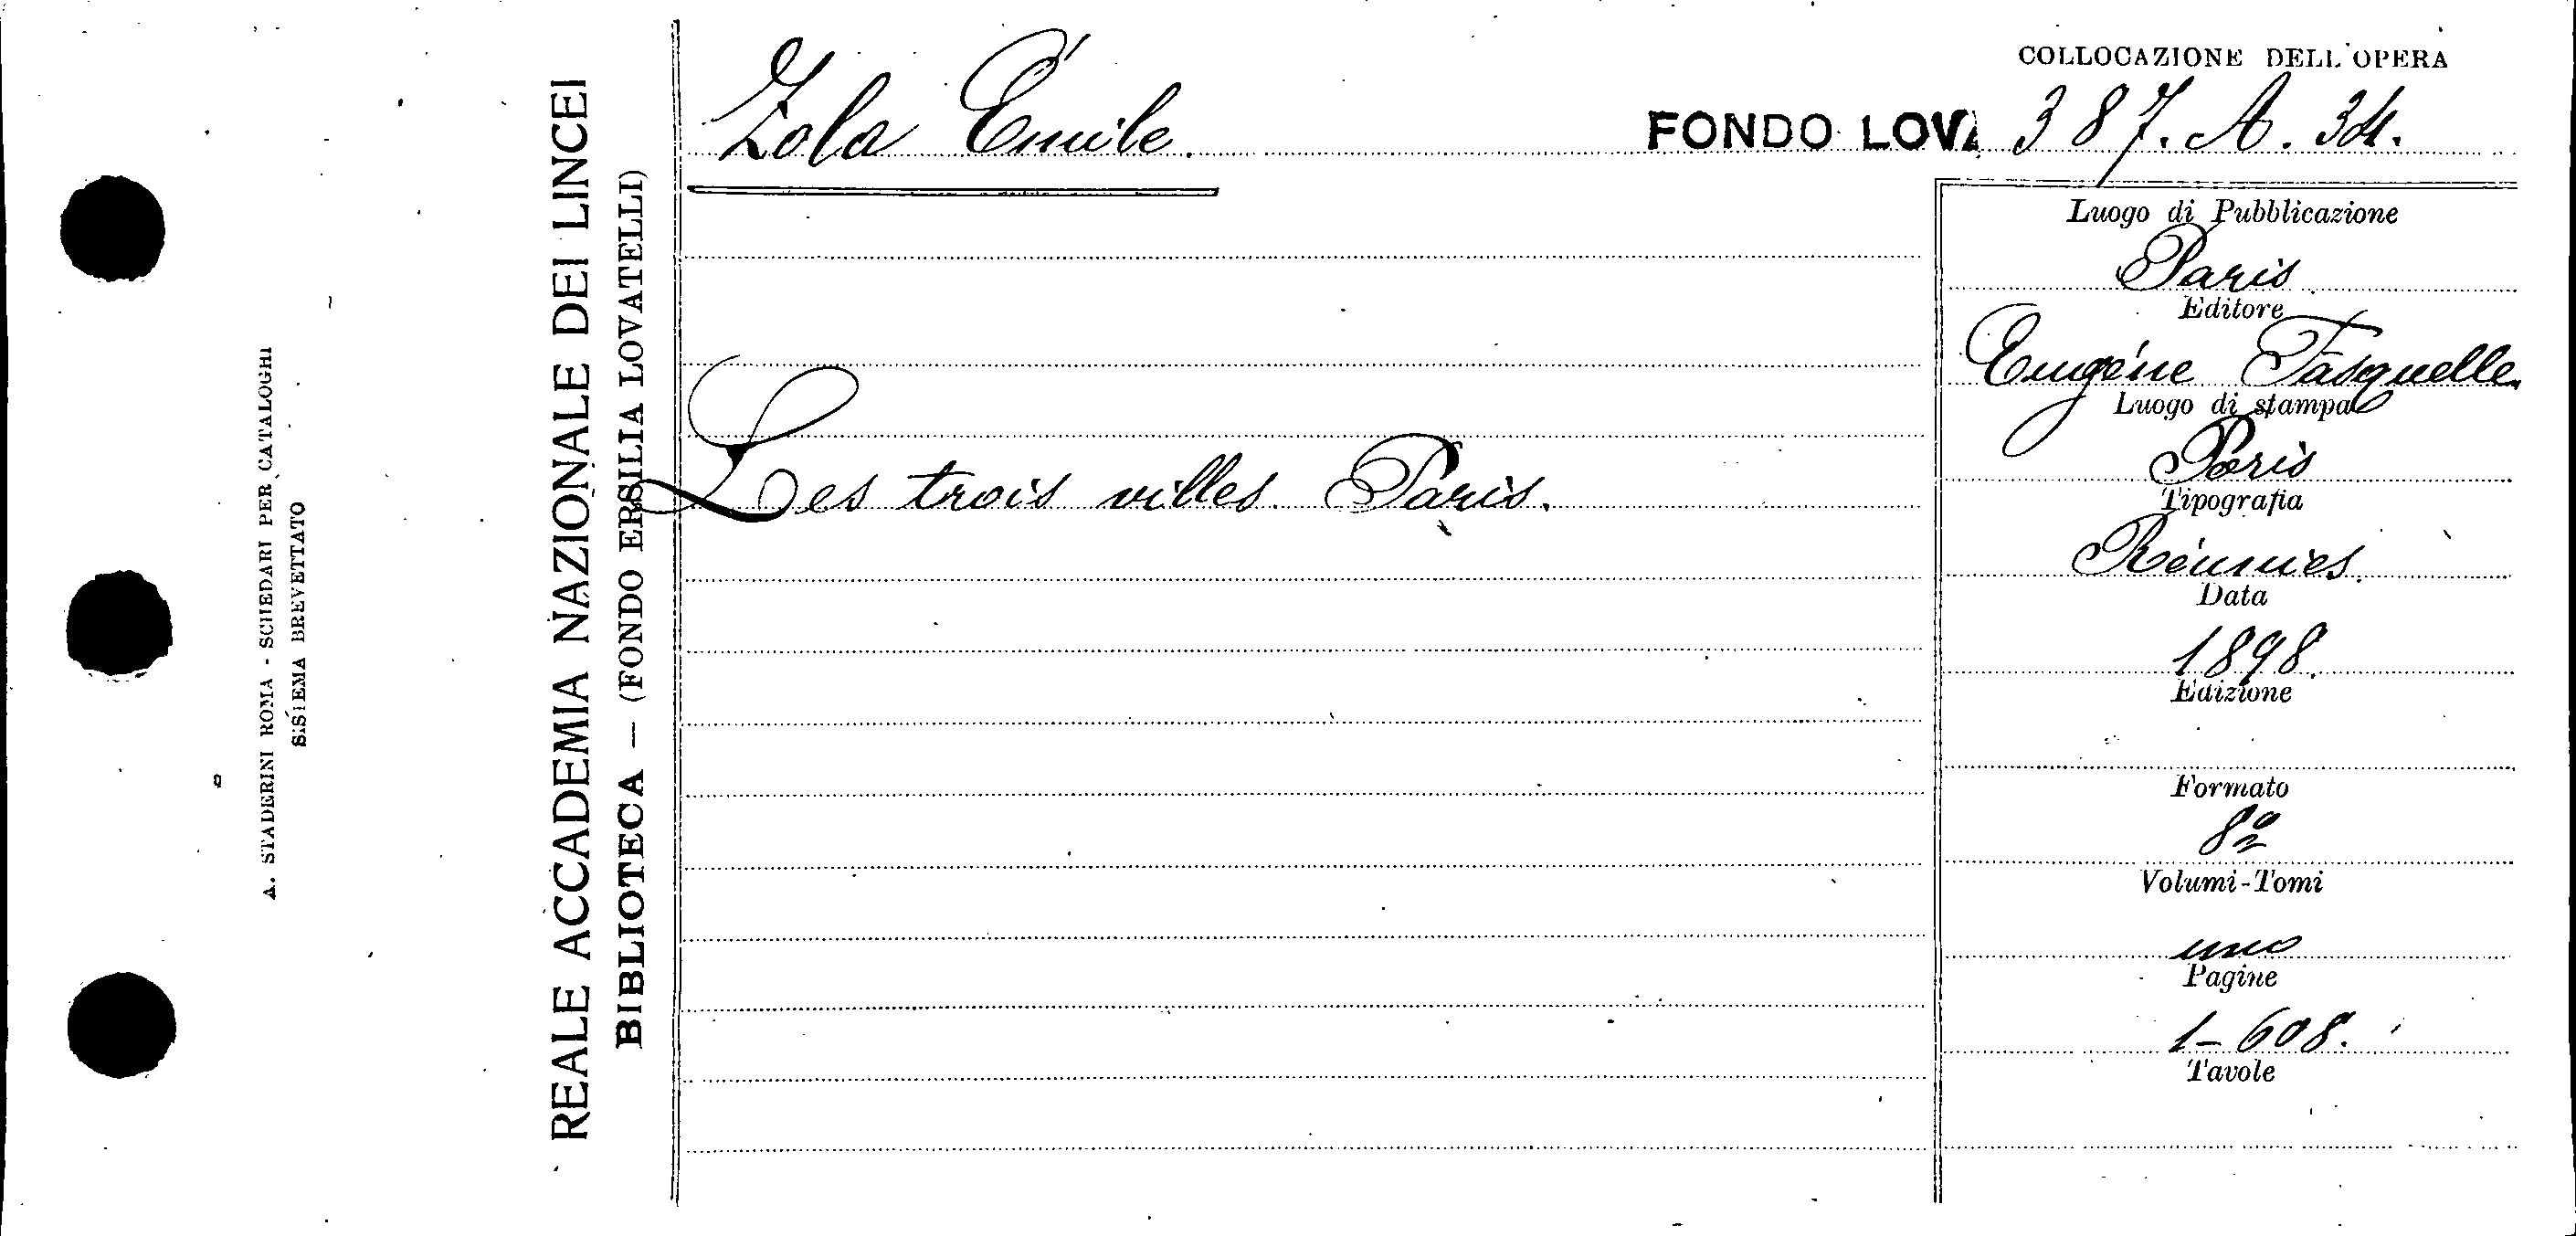 A. STADERINI ROMA - SCHEDARI PER CATALOGHI
SISTEMA BREVETTATO
REALE ACCADEMIA NAZIONALE DEI LINCEI
BIBLIOTECA — (FONDO ERSILIA LOVATELLI)
Zola Émile.
COLLOCAZIONE DELL'OPERA
FONDO LOVA 387. A. 34.
Les trois villes. Paris.
Luogo di Pubblicazione
Paris
Editore
Eugéne Fasquelle.
Luogo di stampa
Paris
Tipografia
Réunies.
Data
1898.
Edizione
Formato
8º
Volumi-Tomi
uno
Pagine
1-608.
Tavole